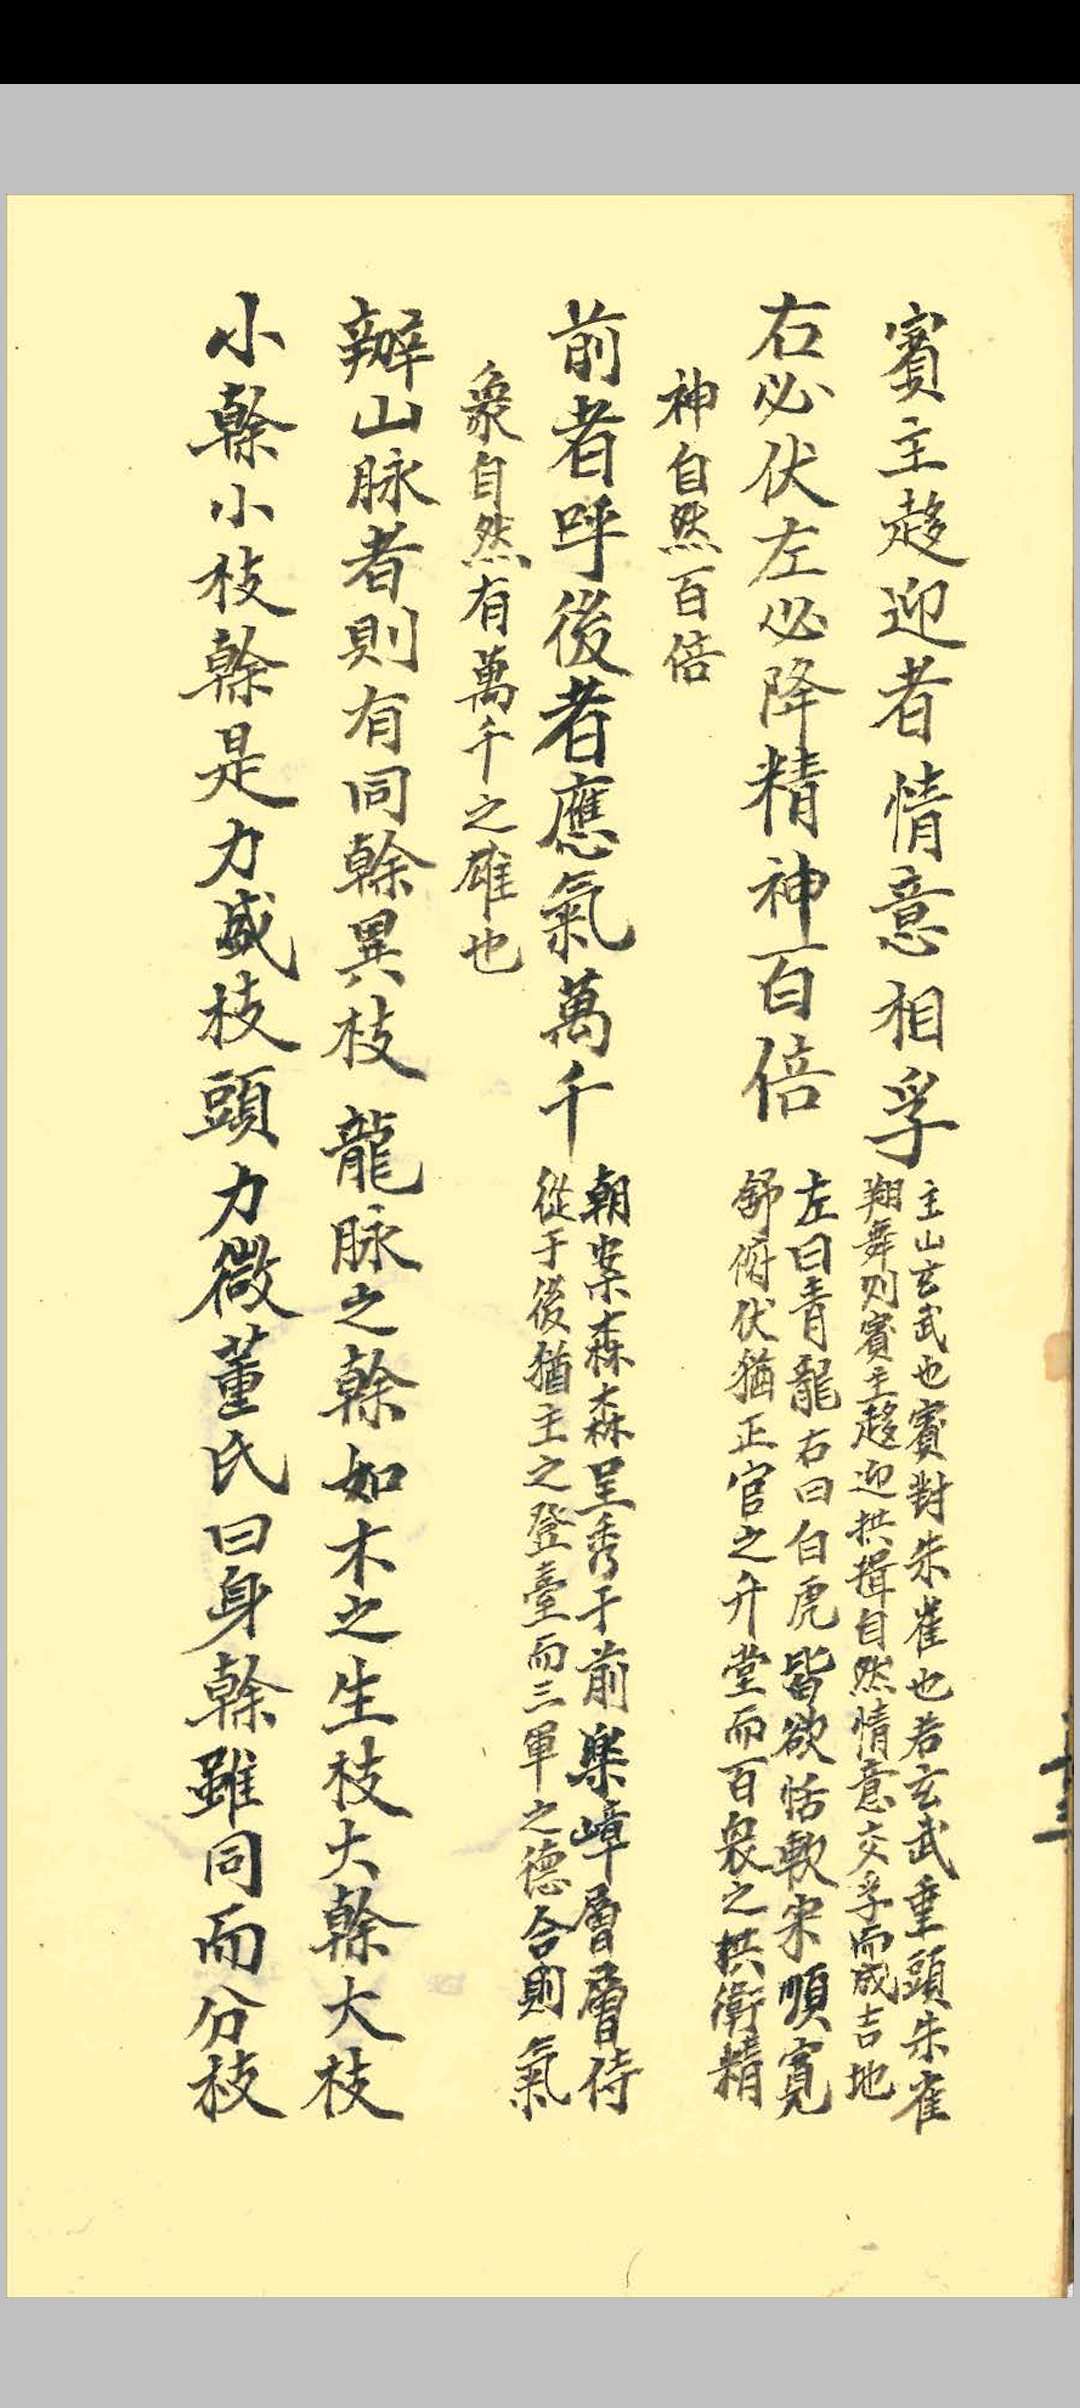 賓主趍迎者情意相孚
主山玄武也賓對朱雀也若玄武垂頭朱雀
翔舞則賓主趍迎拱揖自然情意交孚而成吉地
右必伏左必降精神百倍
左曰青龍右曰白虎皆欲恬軟來順寬
舒俯伏猶正官之升堂而百衆之拱衛精
神自然百倍
前者呼後者應氣萬千
朝案森森呈秀于前樂嶂層層侍
從于後猶主之登臺而三軍之德合則氣
象自然有萬千之雄也
辦山脉者則有同榦異枝龍脉之榦如木之生枝大榦大枝
小榦小枝榦是力盛枝頭力微董氏曰身榦雖同而分枝